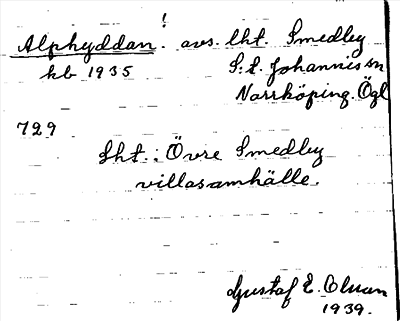 !
Alphyddan. avs. lht. Smedby
kb 1935 S:t Johannes sn
Norrköping. Ögl
729
Lht.: Övre Smedby
villasamhälle.
Gustaf E. Olman
1939.